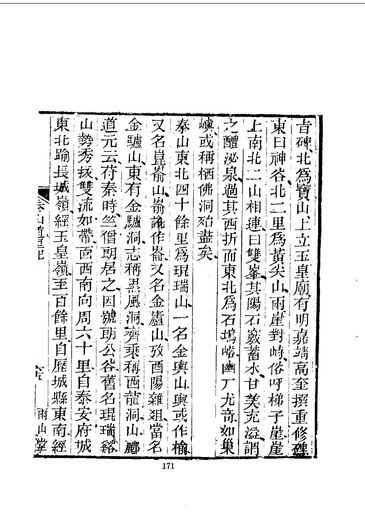 古碑北爲寶山上立玉皇廟有明嘉靖高奎撰重修碑
東曰神谷北二里爲黃尖山兩崖對峙俗呼梯子崖崖
上南北二山相連曰雙峯其陽石竅蓄水甘美充溢謂
之醴泌泉過其西折而東北爲石塢峪幽广尤奇如巢
嶼或稱栖佛洞殆盡矣
泰山東北四十餘里爲琨瑞山一名金輿山輿或作榆
又名崑崳山崳訛作崙又名金廬山攷酉陽雜俎當名
金驢山東有金驢洞志稱黑風洞齊乘稱西龍洞山酈
道元云苻秦時竺僧朗居之因號朗公谷舊名琨瑞谿
山勢秀拔雙流如帶西西南向周六十里自泰安府城
東北踰長城嶺經玉皇嶺至百餘里自歷城縣東南經
泰山道里記
雨山堂
171